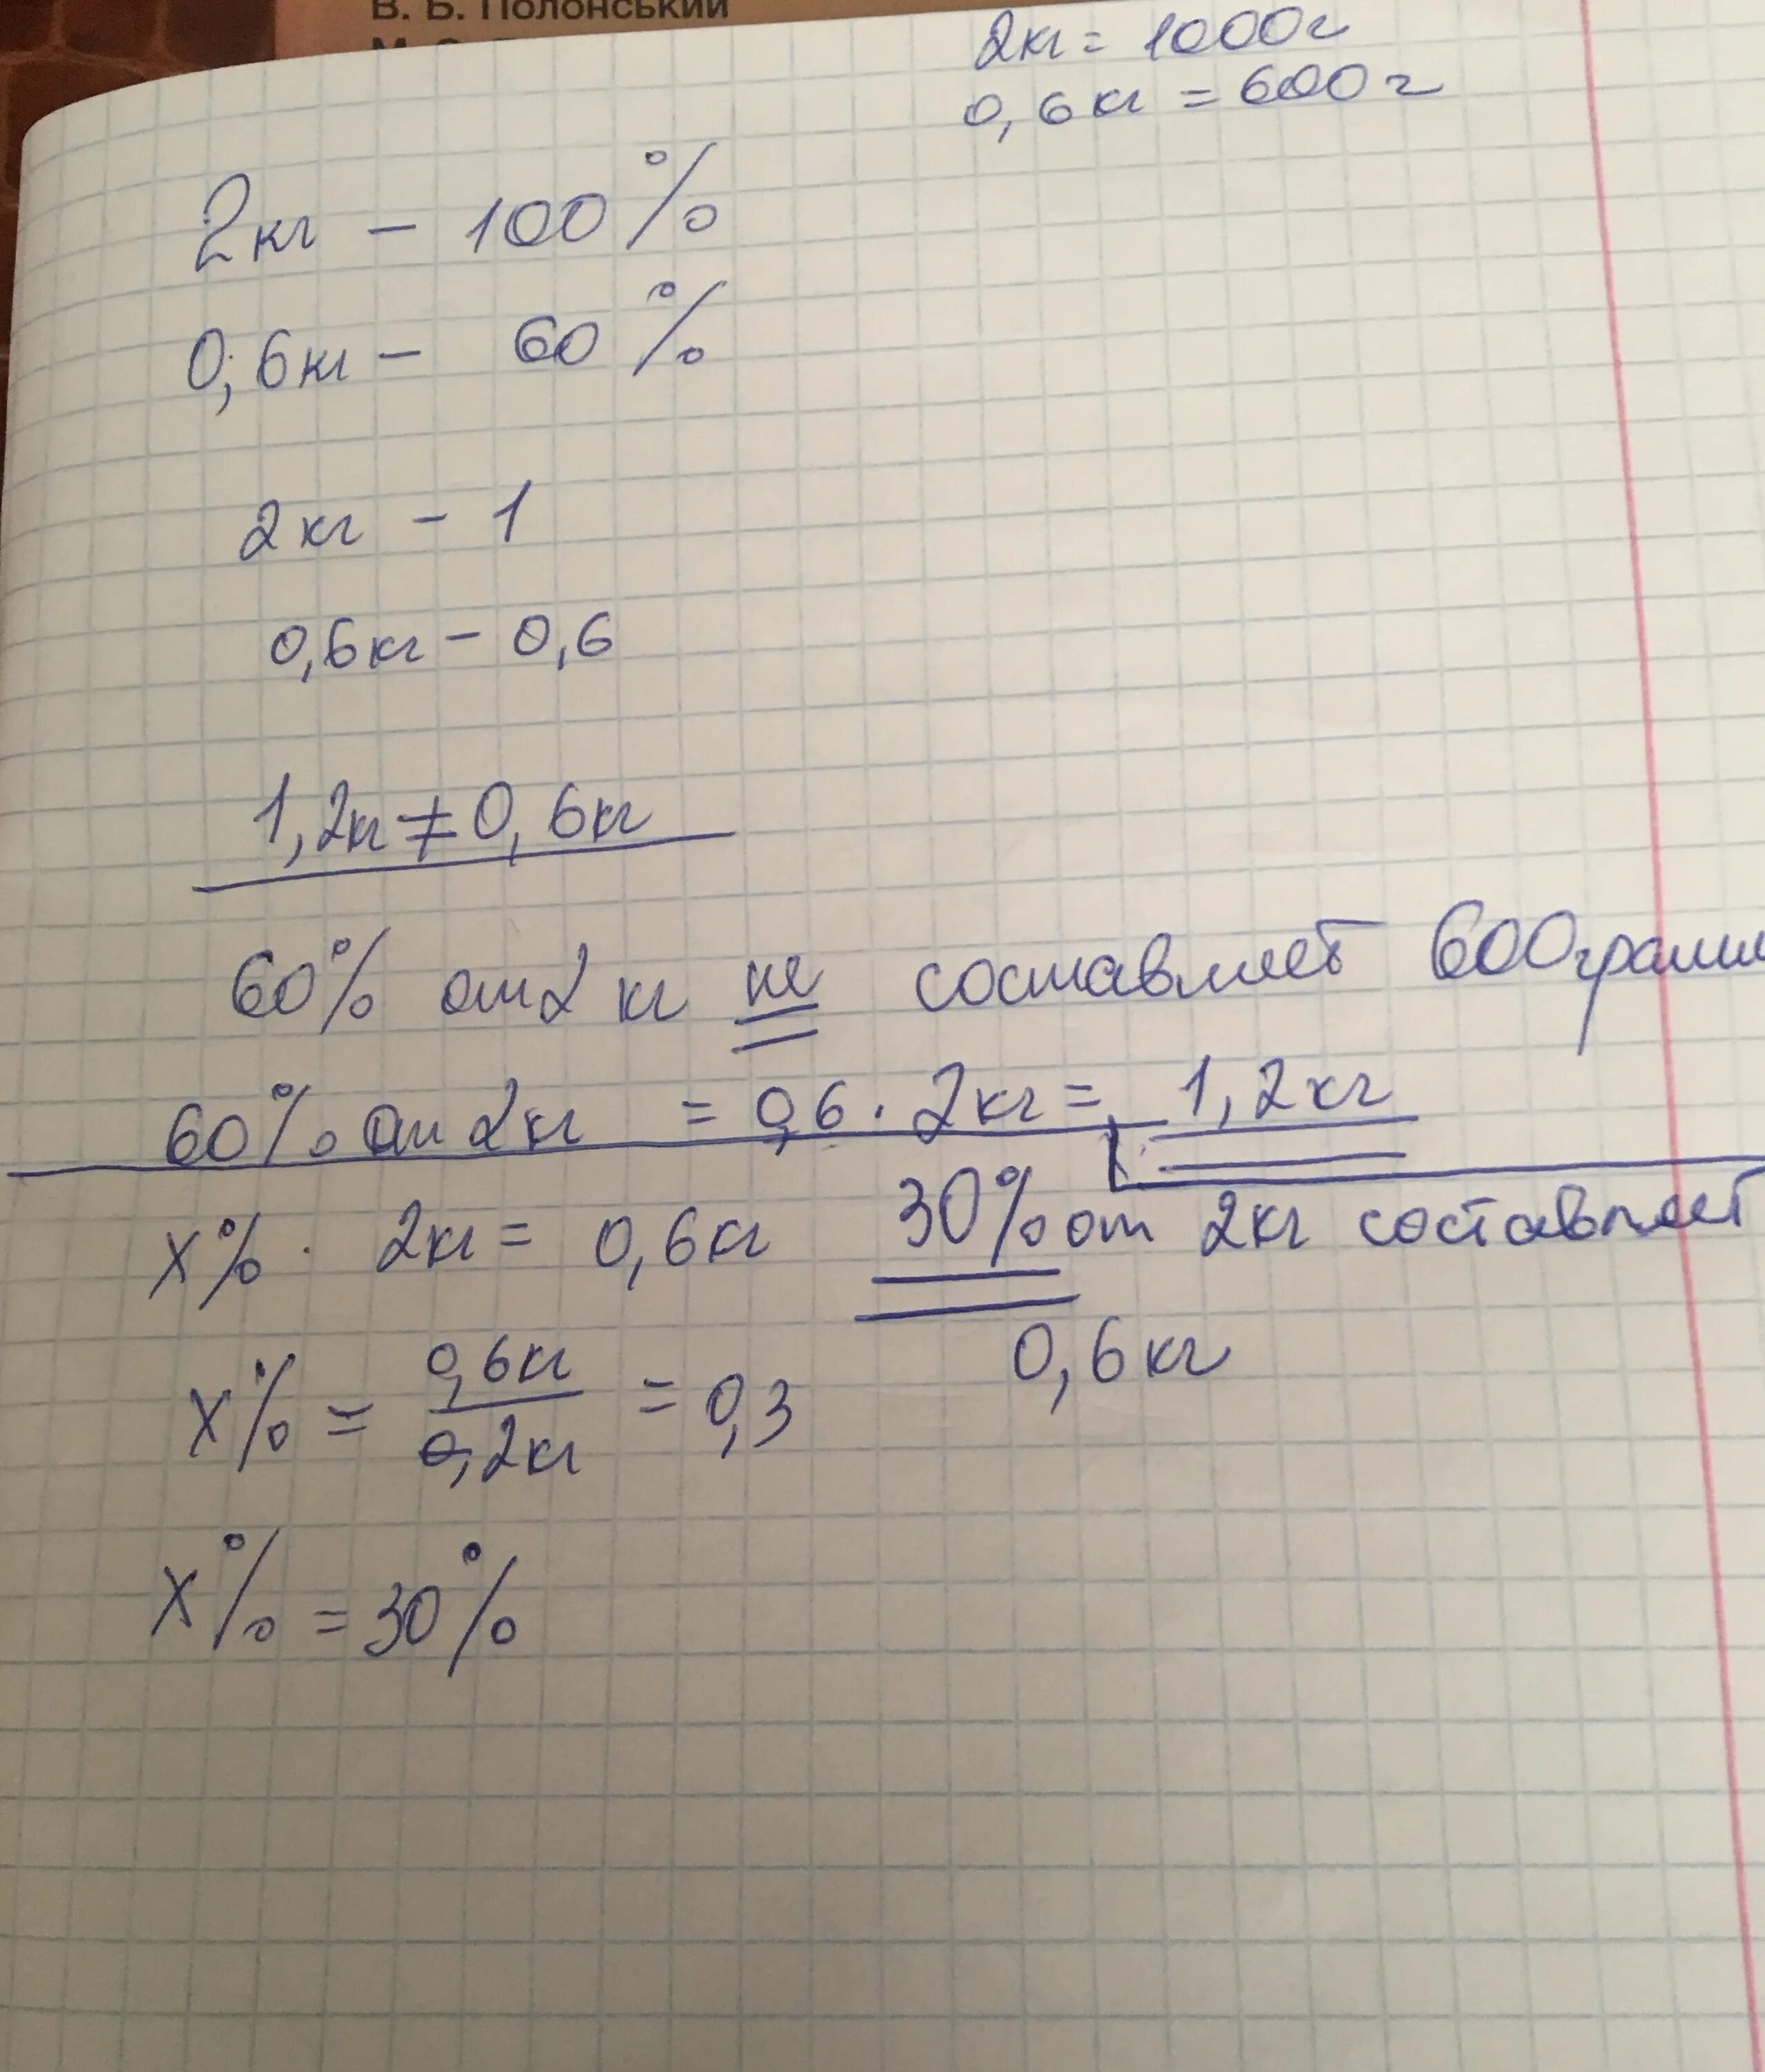 В. Б. Полонський
2кг = 1000г
0,6кг = 600г
2кг – 100%
0,6кг – 60%
2кг – 1
0,6кг – 0,6
1,2кг ≠ 0,6кг
60% от 2 кг не составляет 600 грамм
60% от 2кг = 0,6 · 2кг = 1,2кг
x% · 2кг = 0,6кг
30% от 2кг составляет
0,6кг
x% = 0,6кг / 2кг = 0,3
x% = 30%